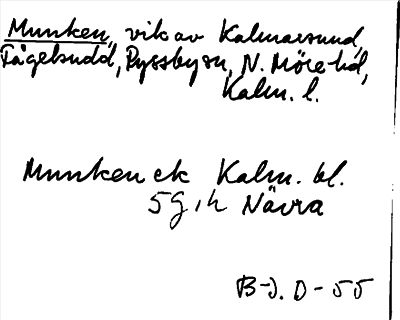 Munken, vik av Kalmarsund,
Fågeludd, Ryssby sn, N. Möre hd,
Kalm. l.
Munken ek Kalm. bl.
5 g, h Nävra
B-J. D - 55